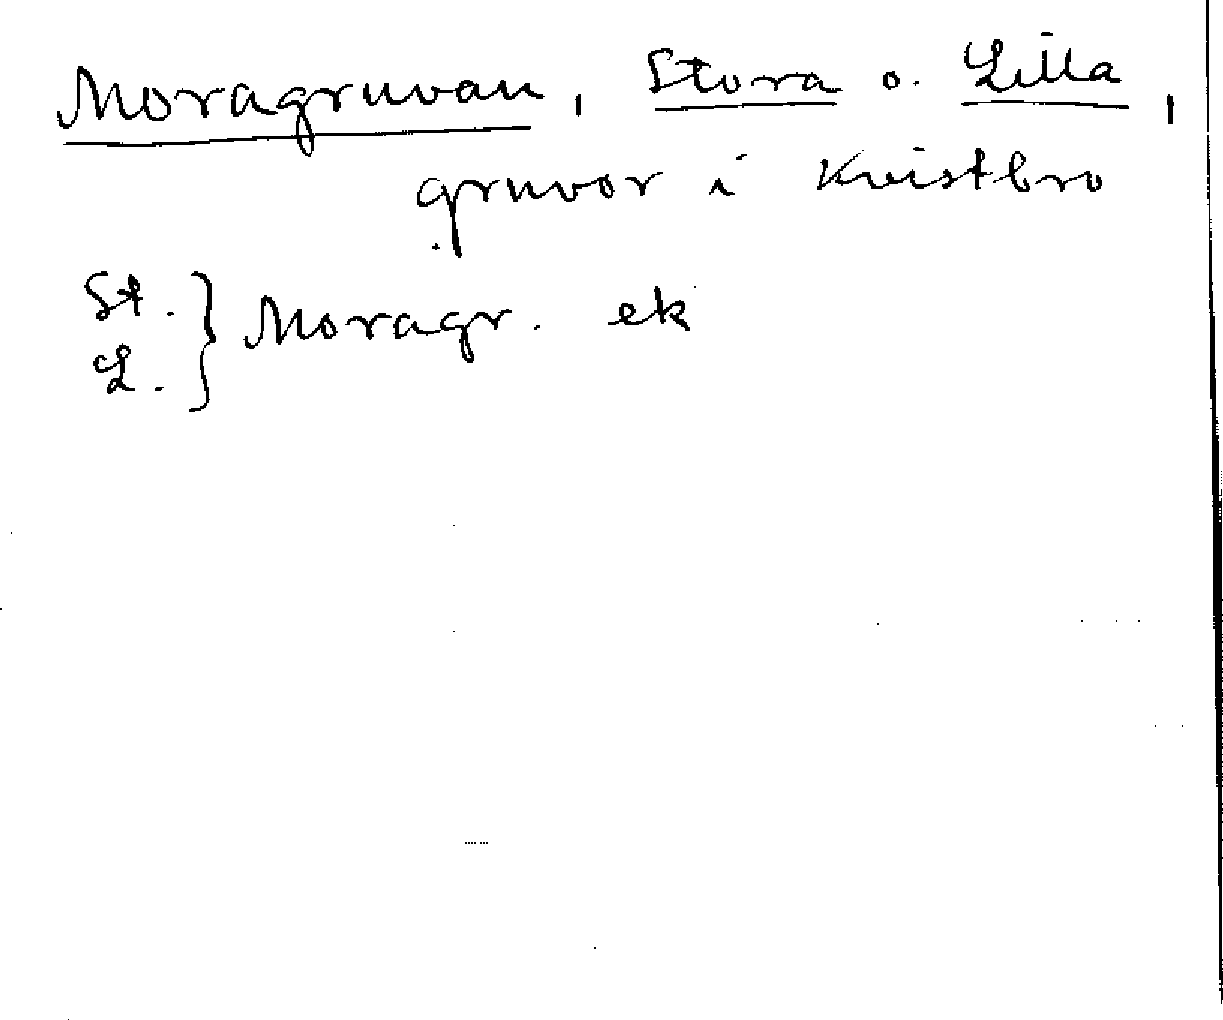 Moragruvan, Stora o. Lilla,
gruvor i Kvistbro
St. } Moragr. ek
L. }